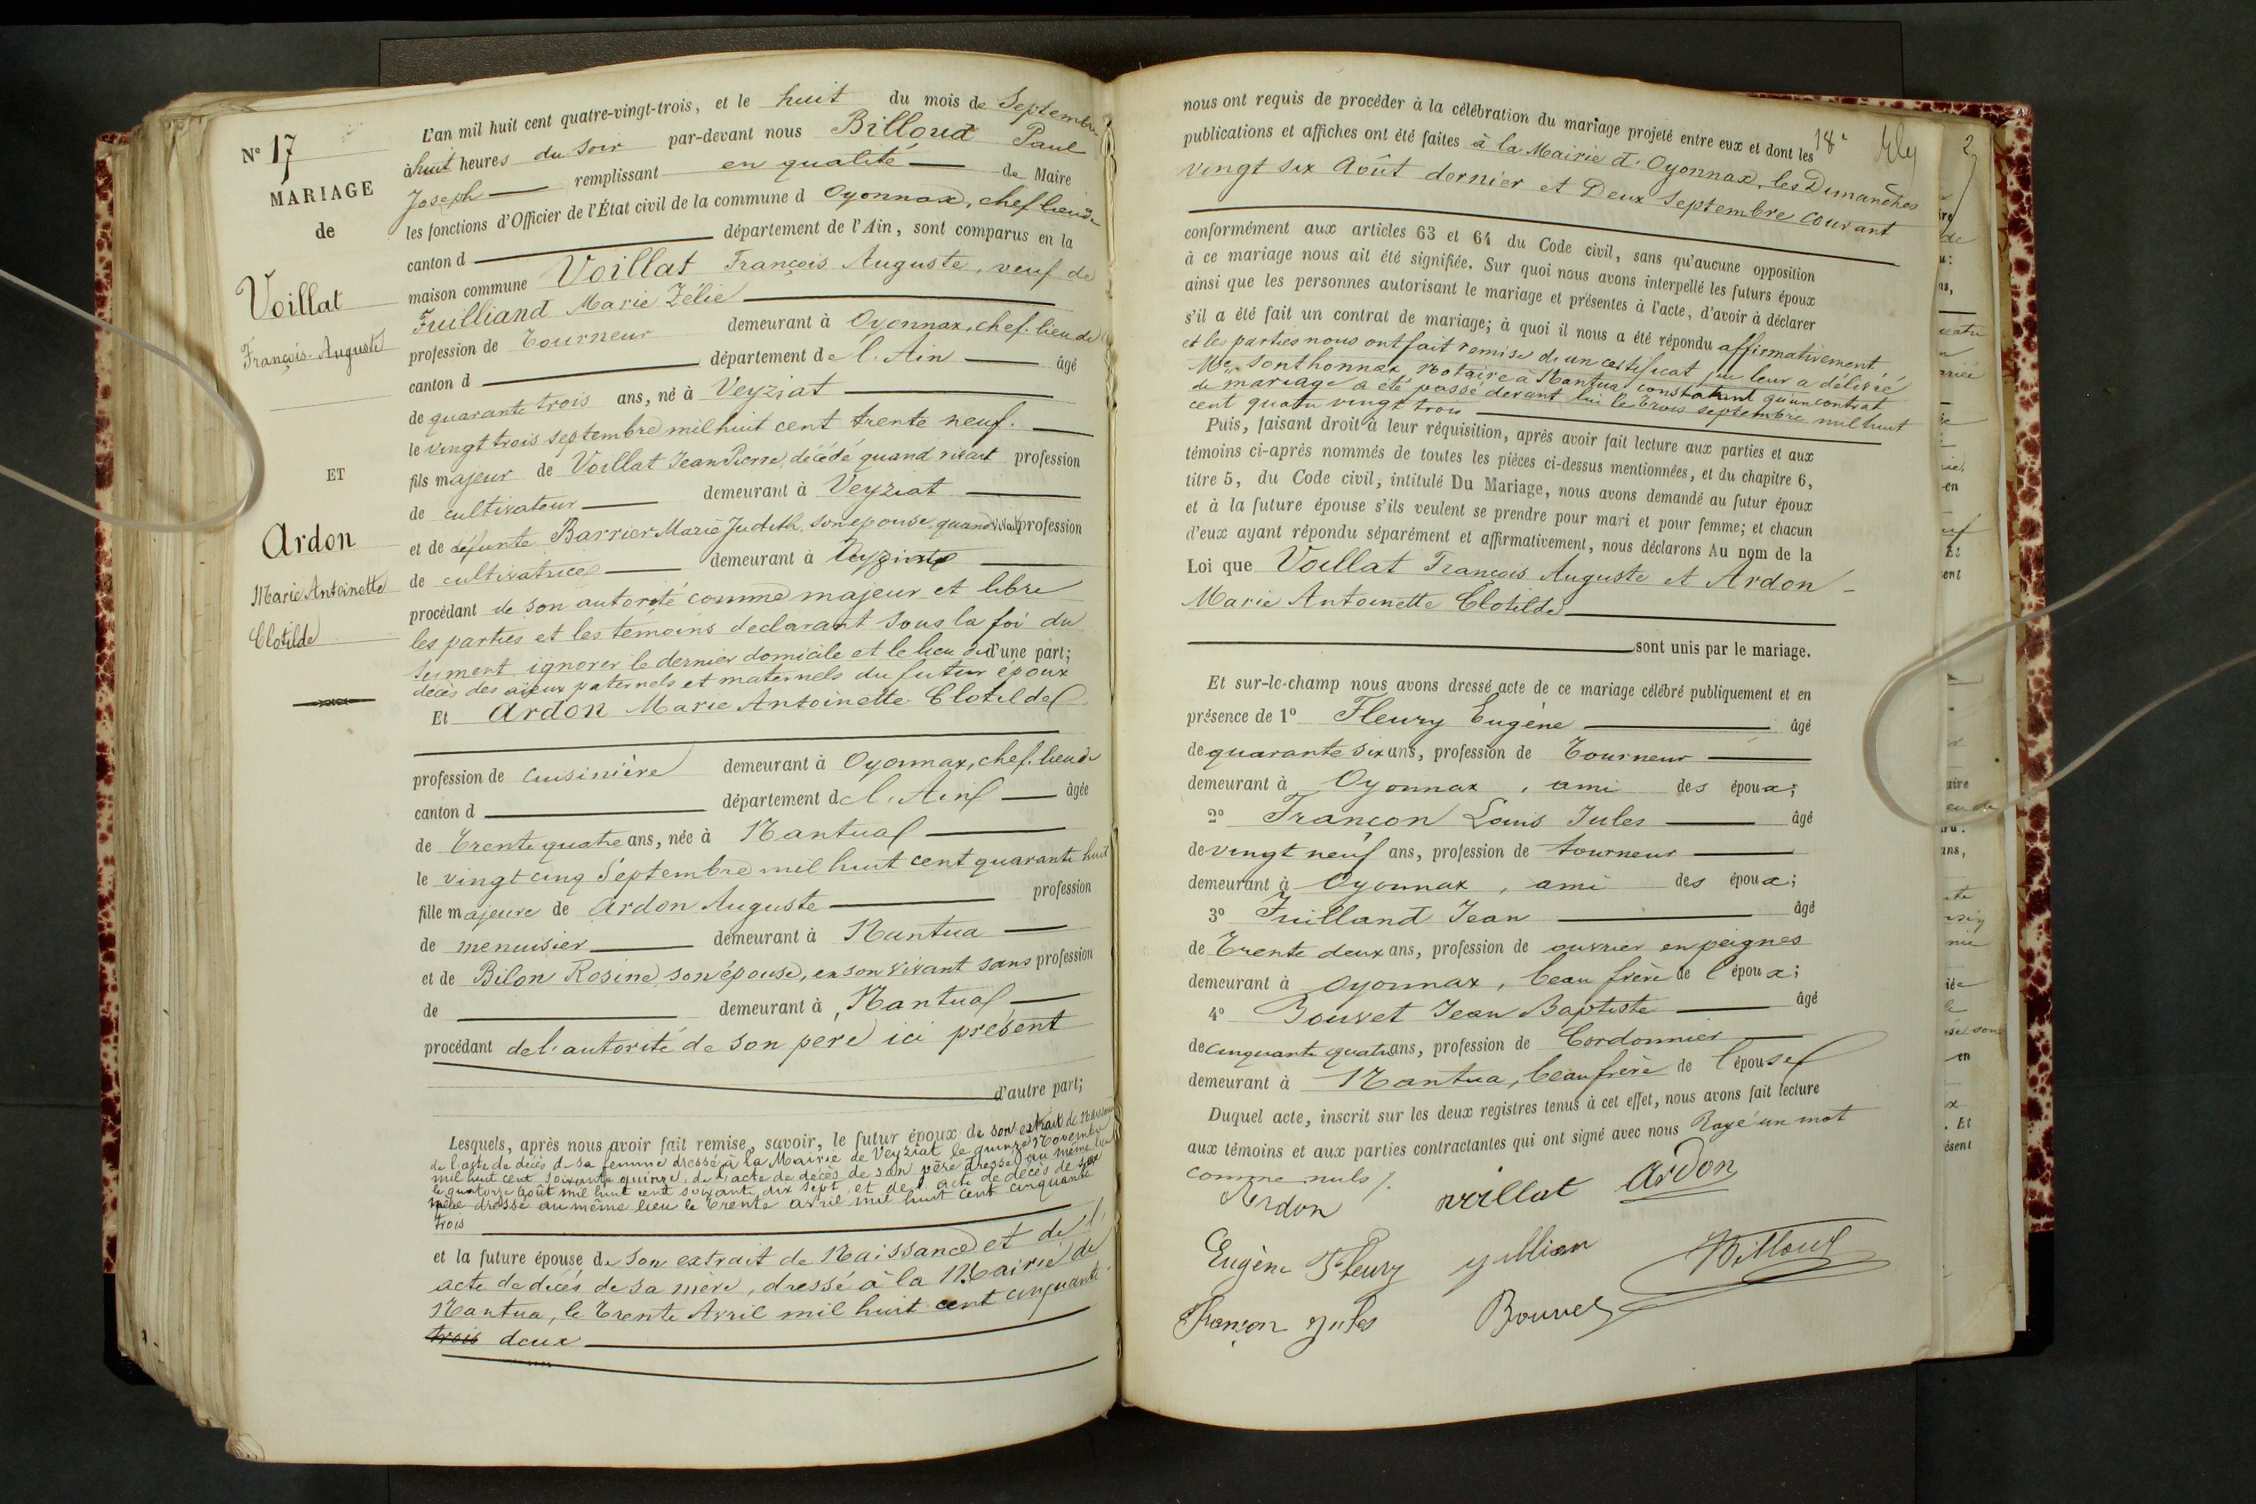 N° 17
MARIAGE
de
Voillat
François-Auguste
ET
Ardon
Marie Antoinette
Clotilde
L'an mil huit cent quatre-vingt-trois, et le huit du mois de Septembre
à huit heures du soir par-devant nous Billoud Paul
Joseph remplissant en qualité de Maire
les fonctions d'Officier de l'État civil de la commune d Oyonnax, chef lieu de
canton d département de l'Ain, sont comparus en la
maison commune Voillat François Auguste, veuf de
Juilliand Marie Zélie
profession de Tourneur demeurant à Oyonnax, chef-lieu de
canton d département de l'Ain âgé
de quarante trois ans, né à Veyziat
le vingt trois septembre mil huit cent trente neuf.
fils majeur de Voillat Jean Pierre, décédé quand vivait profession
de cultivateur demeurant à Veyziat
et de défunte Barrier Marie Judith, son épouse, quand vivait profession
de cultivatrice demeurant à Veyziat
procédant de son autorité comme majeur et libre
les parties et les temoins declarant sous la foi du
serment ignorer le dernier domicile et le lieu de d'une part;
décès des aïeux paternels et maternels du futur époux
Et Ardon Marie Antoinette Clotilde
profession de cuisinière demeurant à Oyonnax, chef-lieu de
canton d département de l'Ain âgée
de Trente quatre ans, née à Nantua
le vingt cinq Septembre mil huit cent quarante huit
fille majeure de Ardon Auguste profession
de menuisier demeurant à Nantua
et de Bilon Rosine, son épouse, en son vivant sans profession
de demeurant à Nantua
procédant de l'autorité de son pere ici présent
d'autre part;
Lesquels, après nous avoir fait remise, savoir, le futur époux de son extrait de Naissance
de l'acte de décès de sa femme dressé à la Mairie de Veyziat le quinze Novembre
mil huit cent soixante quinze, de l'acte de décès de son père dressé au même lieu
le quatorze Août mil huit cent soixante dix sept, et de l'acte de décès de sa
mère dressé au même lieu le trente avril mil huit cent cinquante
trois
et la future épouse de son extrait de Naissance et de l'
acte de décés de sa mère, dressé à la Mairie de
Nantua, le Trente Avril mil huit cent cinquante
trois deux
nous ont requis de procéder à la célébration du mariage projeté entre eux et dont les
publications et affiches ont été faites à la Mairie d'Oyonnax, les Dimanches
vingt six Août dernier et Deux Septembre courant
conformément aux articles 63 et 64 du Code civil, sans qu'aucune opposition
à ce mariage nous ait été signifiée. Sur quoi nous avons interpellé les futurs époux
ainsi que les personnes autorisant le mariage et présentes à l'acte, d'avoir à déclarer
s'il a été fait un contrat de mariage; à quoi il nous a été répondu affirmativement,
et les parties nous ont fait remise de un certificat que leur a délivré
Me Sonthonnax, Notaire à Nantua, constatant qu'un contrat
de mariage a été passé devant lui le trois septembre mil huit
cent quatre vingt trois
Puis, faisant droit à leur réquisition, après avoir fait lecture aux parties et aux
témoins ci-après nommés de toutes les pièces ci-dessus mentionnées, et du chapitre 6,
titre 5, du Code civil, intitulé Du Mariage, nous avons demandé au futur époux
et à la future épouse s'ils veulent se prendre pour mari et pour femme; et chacun
d'eux ayant répondu séparément et affirmativement, nous déclarons Au nom de la
Loi que Voillat François Auguste et Ardon
Marie Antoinette Clotilde
sont unis par le mariage.
Et sur-le-champ nous avons dressé acte de ce mariage célébré publiquement et en
présence de 1° Fleury Eugène âgé
de quarante six ans, profession de Tourneur
demeurant à Oyonnax, ami des époux;
2° Françon Louis Jules âgé
de vingt neuf ans, profession de tourneur
demeurant à Oyonnax, ami des époux;
3° Juilland Jean âgé
de Trente deux ans, profession de ouvrier en peignes
demeurant à Oyonnax, beau frère de l'époux;
4° Bouvet Jean Baptiste âgé
de cinquante quatre ans, profession de Cordonnier
demeurant à Nantua, beau frère de l'épouse
Duquel acte, inscrit sur les deux registres tenus à cet effet, nous avons fait lecture
aux témoins et aux parties contractantes qui ont signé avec nous Rayé un mot
comme nuls
Ardon voillat Ardon
Eugène Fleury Billoud
Françon Jules Bouvet